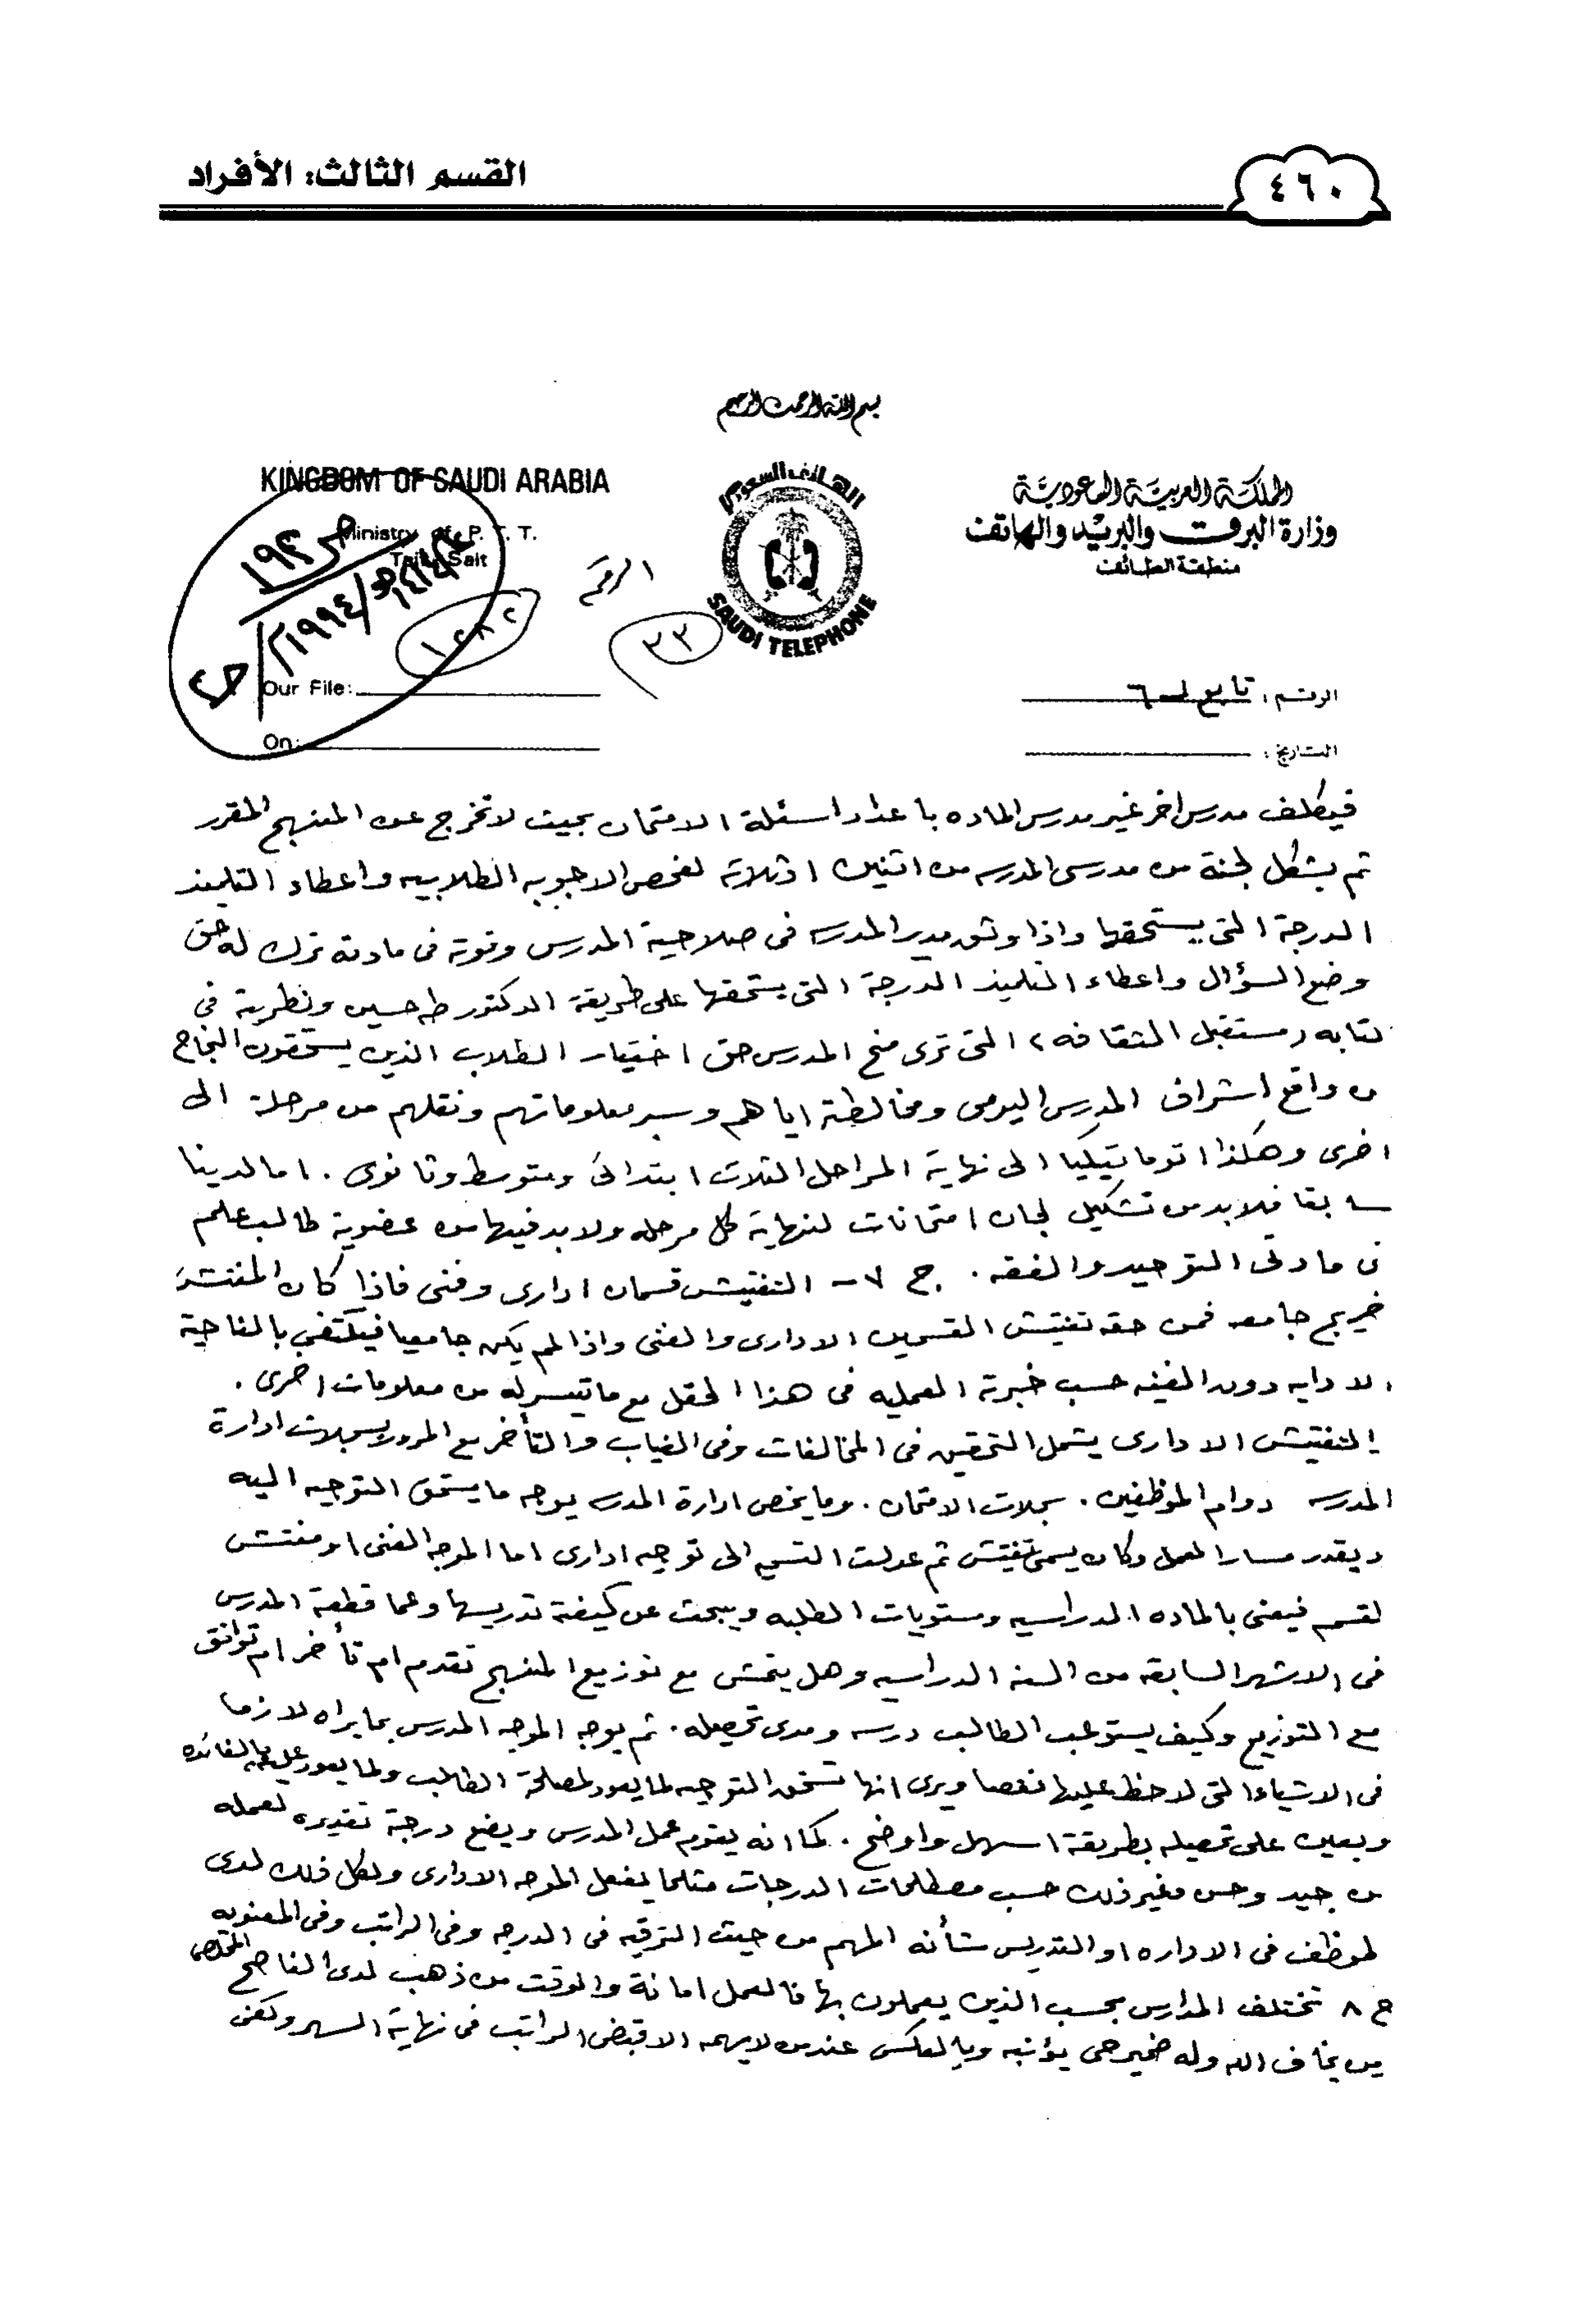 القسم الثالث: الأفراد
٤٦٠
بسم الله الرحمن الرحيم
KINGDOM OF SAUDI ARABIA
Ministry of P. T. T.
Taif Sait
الهاتف السعودي
SAUDI TELEPHONE
المملكة العربية السعودية
وزارة البرق والبريد والهاتف
منطقة الطائف
ص ١٩٢
١٩٩٤م
الرقم
٣٣
Our File:
On:
الرقم: تابع لـ ٦
التاريخ:
فيكلف مدرس اخر غير مدرس الماده باعداد اسئلة الامتحان بحيث لا تخرج عن المنهج المقرر
ثم يشكل لجنة من مدرسي المدرسه من اثنين او ثلاثة لفحص الاجوبه الطلابيه واعطاء التلميذ
الدرجة التي يستحقها واذا وثق مدير المدرسه في صلاحية المدرس وقوته في مادته ترك له حق
وضع السؤال واعطاء التلميذ الدرجة التي يستحقها على طريقة الدكتور طه حسين ونظريته في
كتابه (مستقبل الثقافه) التي ترى منح المدرس حق اختيار الطلاب الذين يستحقون النجاح
من واقع اشراف المدرس اليومي ومخالطته اياهم وسير معلوماتهم ونقلهم من مرحلة الى
اخرى وهكذا اتوماتيكيا الى نهاية المراحل الثلاث ابتدائي ومتوسط وثانوي. اما لدينا
سابقا فلابد من تشكيل لجان امتحانات لنهاية كل مرحله ولابد فيها من عضوية طالب علم
في مادتي التوحيد والفقه. ج ٧ - التفتيش قسمان اداري وفني فاذا كان المفتش
خريج جامعه فمن حقه تفتيش القسمين الاداري والفني واذا لم يكن جامعيا فيكتفي بالناحية
الادايه دون الفنيه حسب خبرته العمليه في هذا الحقل مع ما تيسر له من معلومات اخرى.
التفتيش الاداري يشمل التحقيق في المخالفات وفي الغياب والتأخر مع المرور بسجلات ادارة
المدرسه دوام الموظفين. سجلات الامتحان. وما يخص ادارة المدرسه يوجه ما يستحق التوجيه اليه
ويقدر مسار العمل وكان يسمى تفتيش ثم عدلت التسميه الى توجيه اداري اما الموجه الفني او مفتش
لقسم فيعنى بالماده الدراسيه ومستويات الطلبه ويبحث عن كيفية تدريسها وعما قطعه المدرس
في الاشهر السابقه من السنه الدراسيه وهل يتمشى مع توزيع المنهج تقدم ام تأخر ام توافق
مع التوزيع وكيف يستوعب الطالب درسه ومدى تحصيله. ثم يوجه الموجه المدرس بما يراه لازما
في الاشياء التي لاحظ عليها نقصا ويرى انها تستحق التوجيه لما يعود لمصلحة الطالب ولما يعود عليه بالفائده
ويعين على تحصيله بطريقة اسهل واوضح. كما انه يقوم عمل المدرس ويضع درجة تقديره لعمله
من جيد وحسن وغير ذلك حسب مصطلحات الدرجات مثلما يفعل الموجه الاداري ولكل ذلك لدى
لموظف في الاداره او التدريس شأنه المهم من حيث الترقيه في الدرجه وفي الراتب وفي المعنويه
ج ٨ تختلف المدارس بحسب الذين يعملون بها فالعمل امانة والوقت من ذهب لدى الناصح المخلص
من يخاف الله وله ضمير حي يؤنبه وبالعكس عند من لا يهمه الا قبض الراتب في نهاية الشهر وكفى